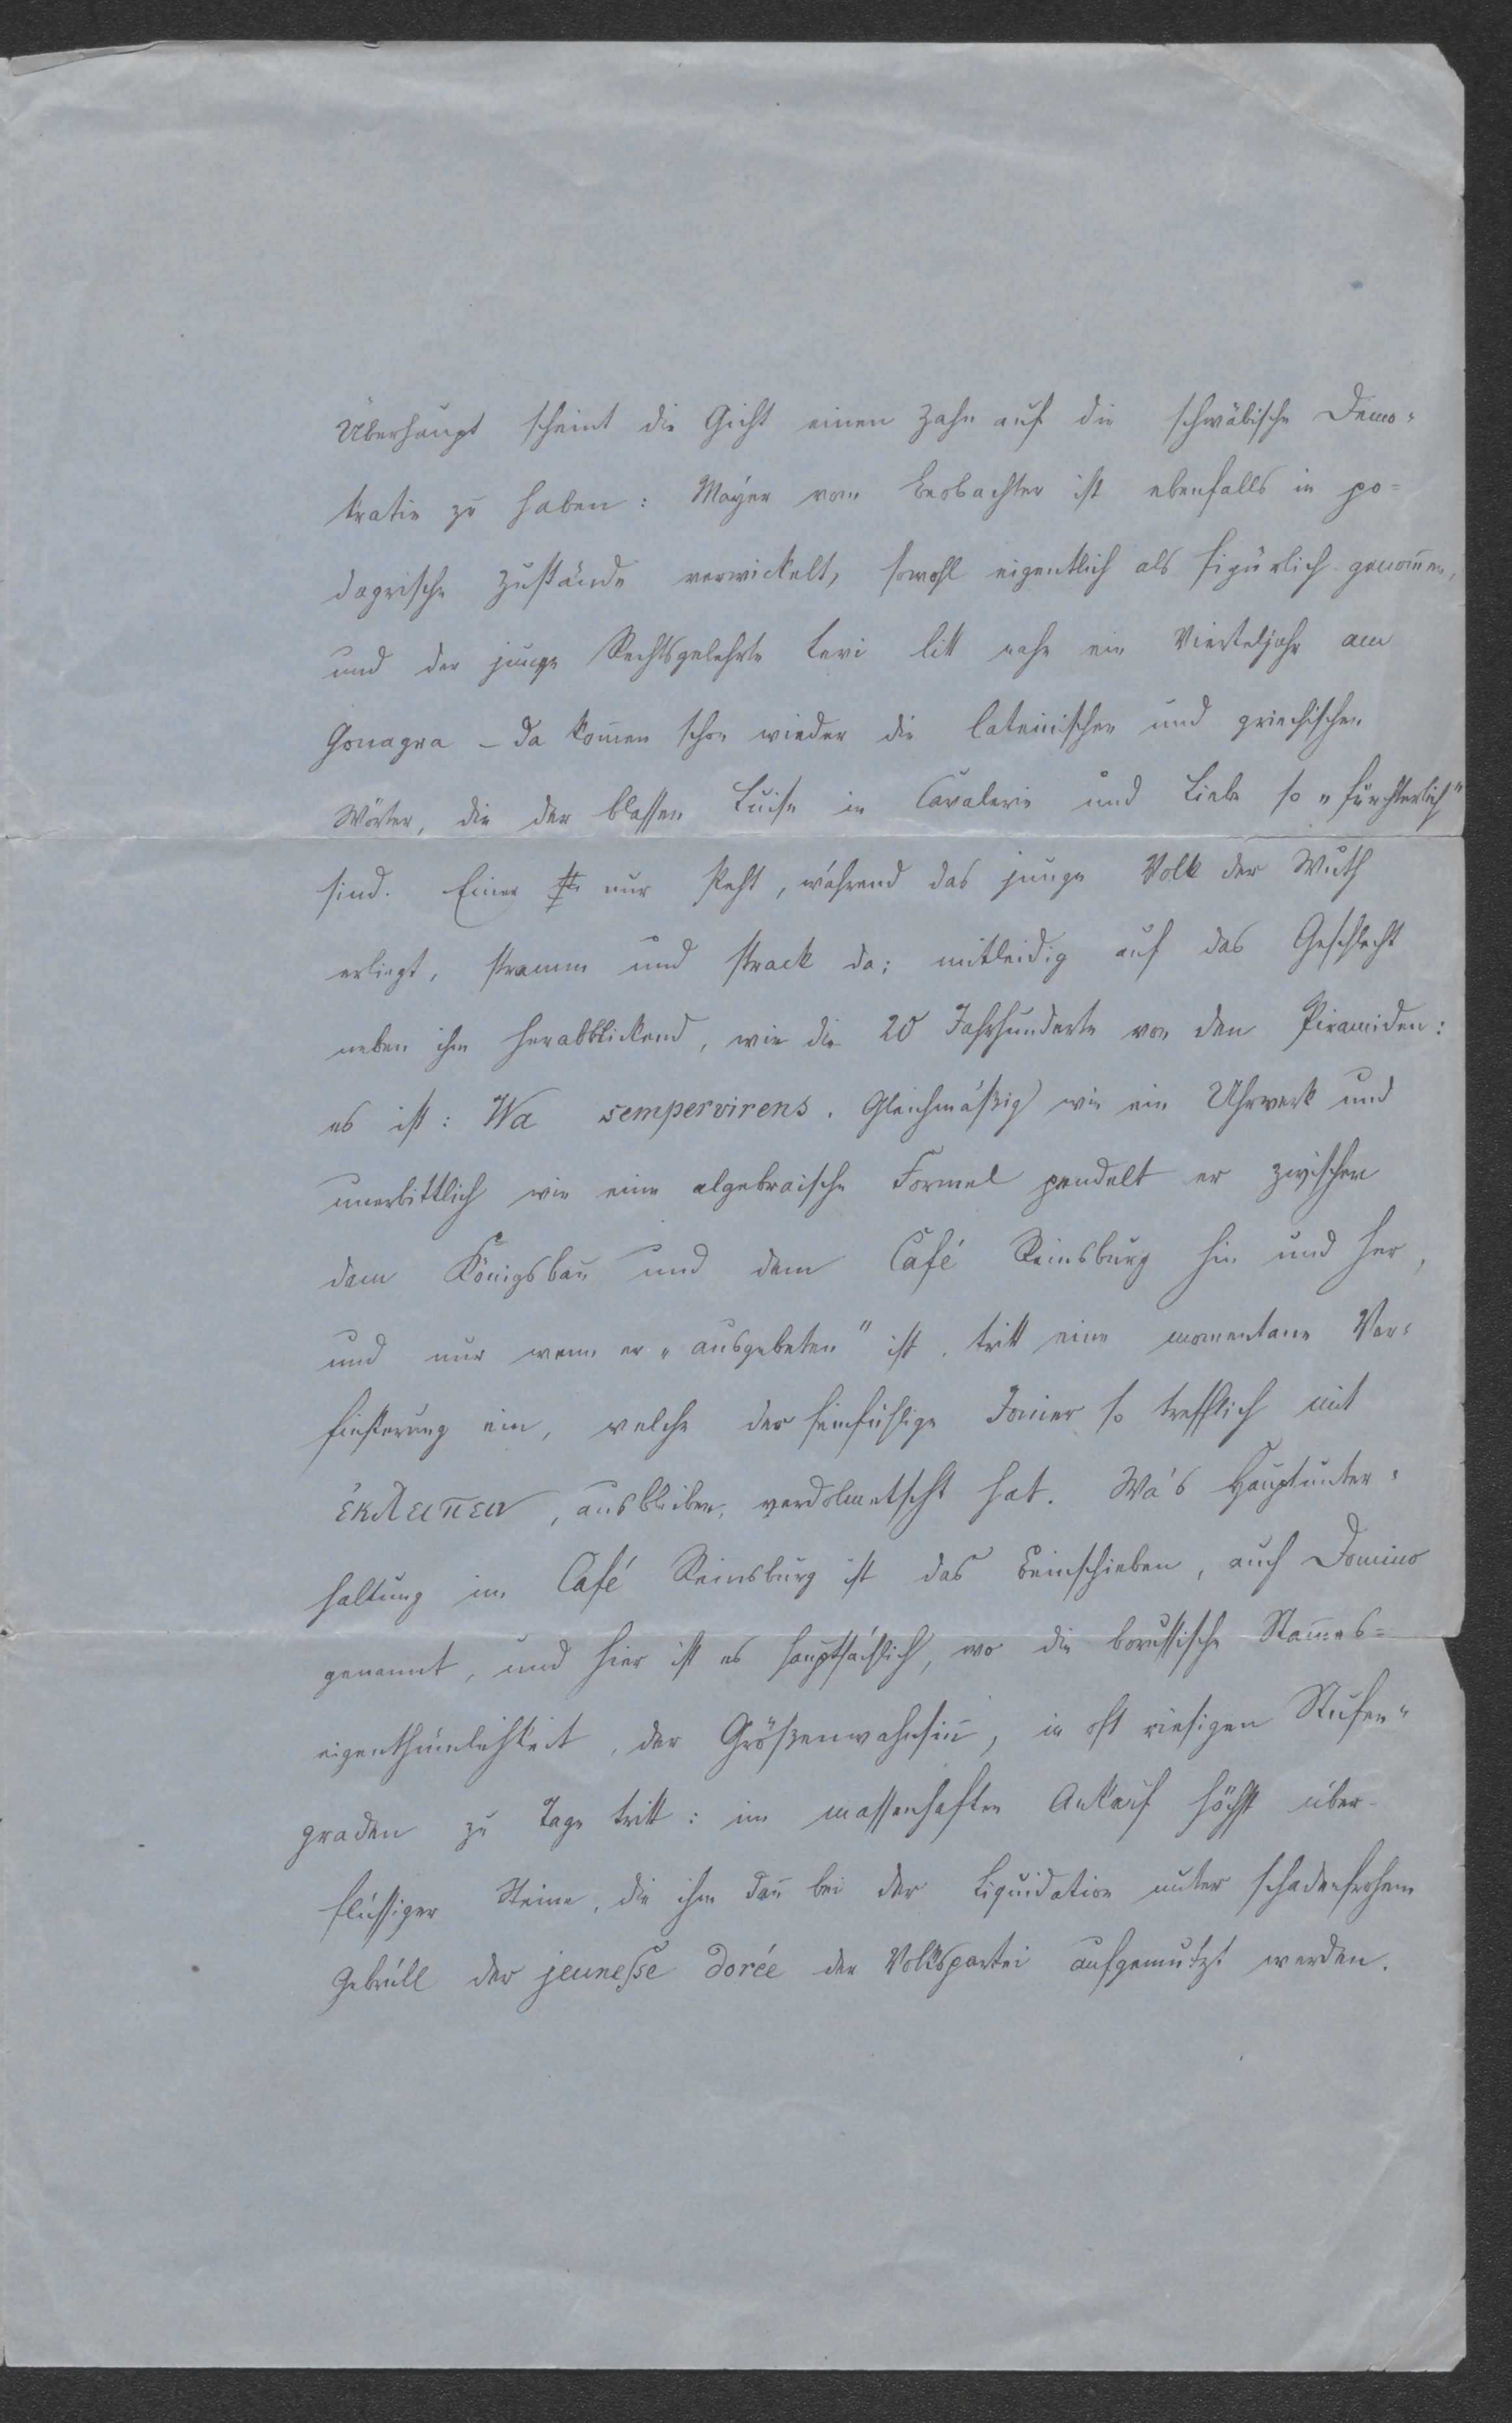 Überhaupt scheint die Gicht einen Zahn auf die schwäbische Demo-
kratie zu haben: Mayer vom Beobachter ist ebenfalls in po-
dagrische Zustände verwickelt, sowohl eigentlich als figürlich genom̄en,
und der junge Rechtsgelehrte Levi litt nahe ein Vierteljahr am
Gonagra – da kom̄en schon wieder die lateinischen und griechischen
Wörter, die der blassen Luise in Cavalerie und Liebe so „fürchterlich"
sind. Einer nur steht, während das junge Volk der Wuth
erliegt, stramm und strack da; mitleidig auf das Geschlecht
neben ihm herabblickend, wie die 20 Jahrhunderte von den Piramiden:
es ist: Wa sempervirens. Gleichmäßig wie ein Uhrwerk und
unerbittlich wie eine algebraische Formel pendelt er zwischen
dem Königsbau und dem Café Reinsburg hin und her,
und nur wenn er „ausgebeten" ist, tritt eine momentane Ver-
finsterung ein, welche der feinfühlige Jonier so trefflich mit
ἐκλειπειν, ausbleiben, verdolmetscht hat. Wa's Hauptunter-
haltung im Café Reinsburg ist das Beinschieben, auch Domino
genannt, und hier ist es hauptsächlich, wo die borussische Stam̄es-
eigenthümlichkeit, der Größenwahnsin̄, in oft riesigen Stufen-
graden zu Tage tritt: im massenhaften Ankauf höchst über-
flüssiger Steine, die ihm dan̄ bei der Liquidation unter schadenfrohem
Gebrüll der jeunesse dorée der Volkspartei aufgemutzt werden.